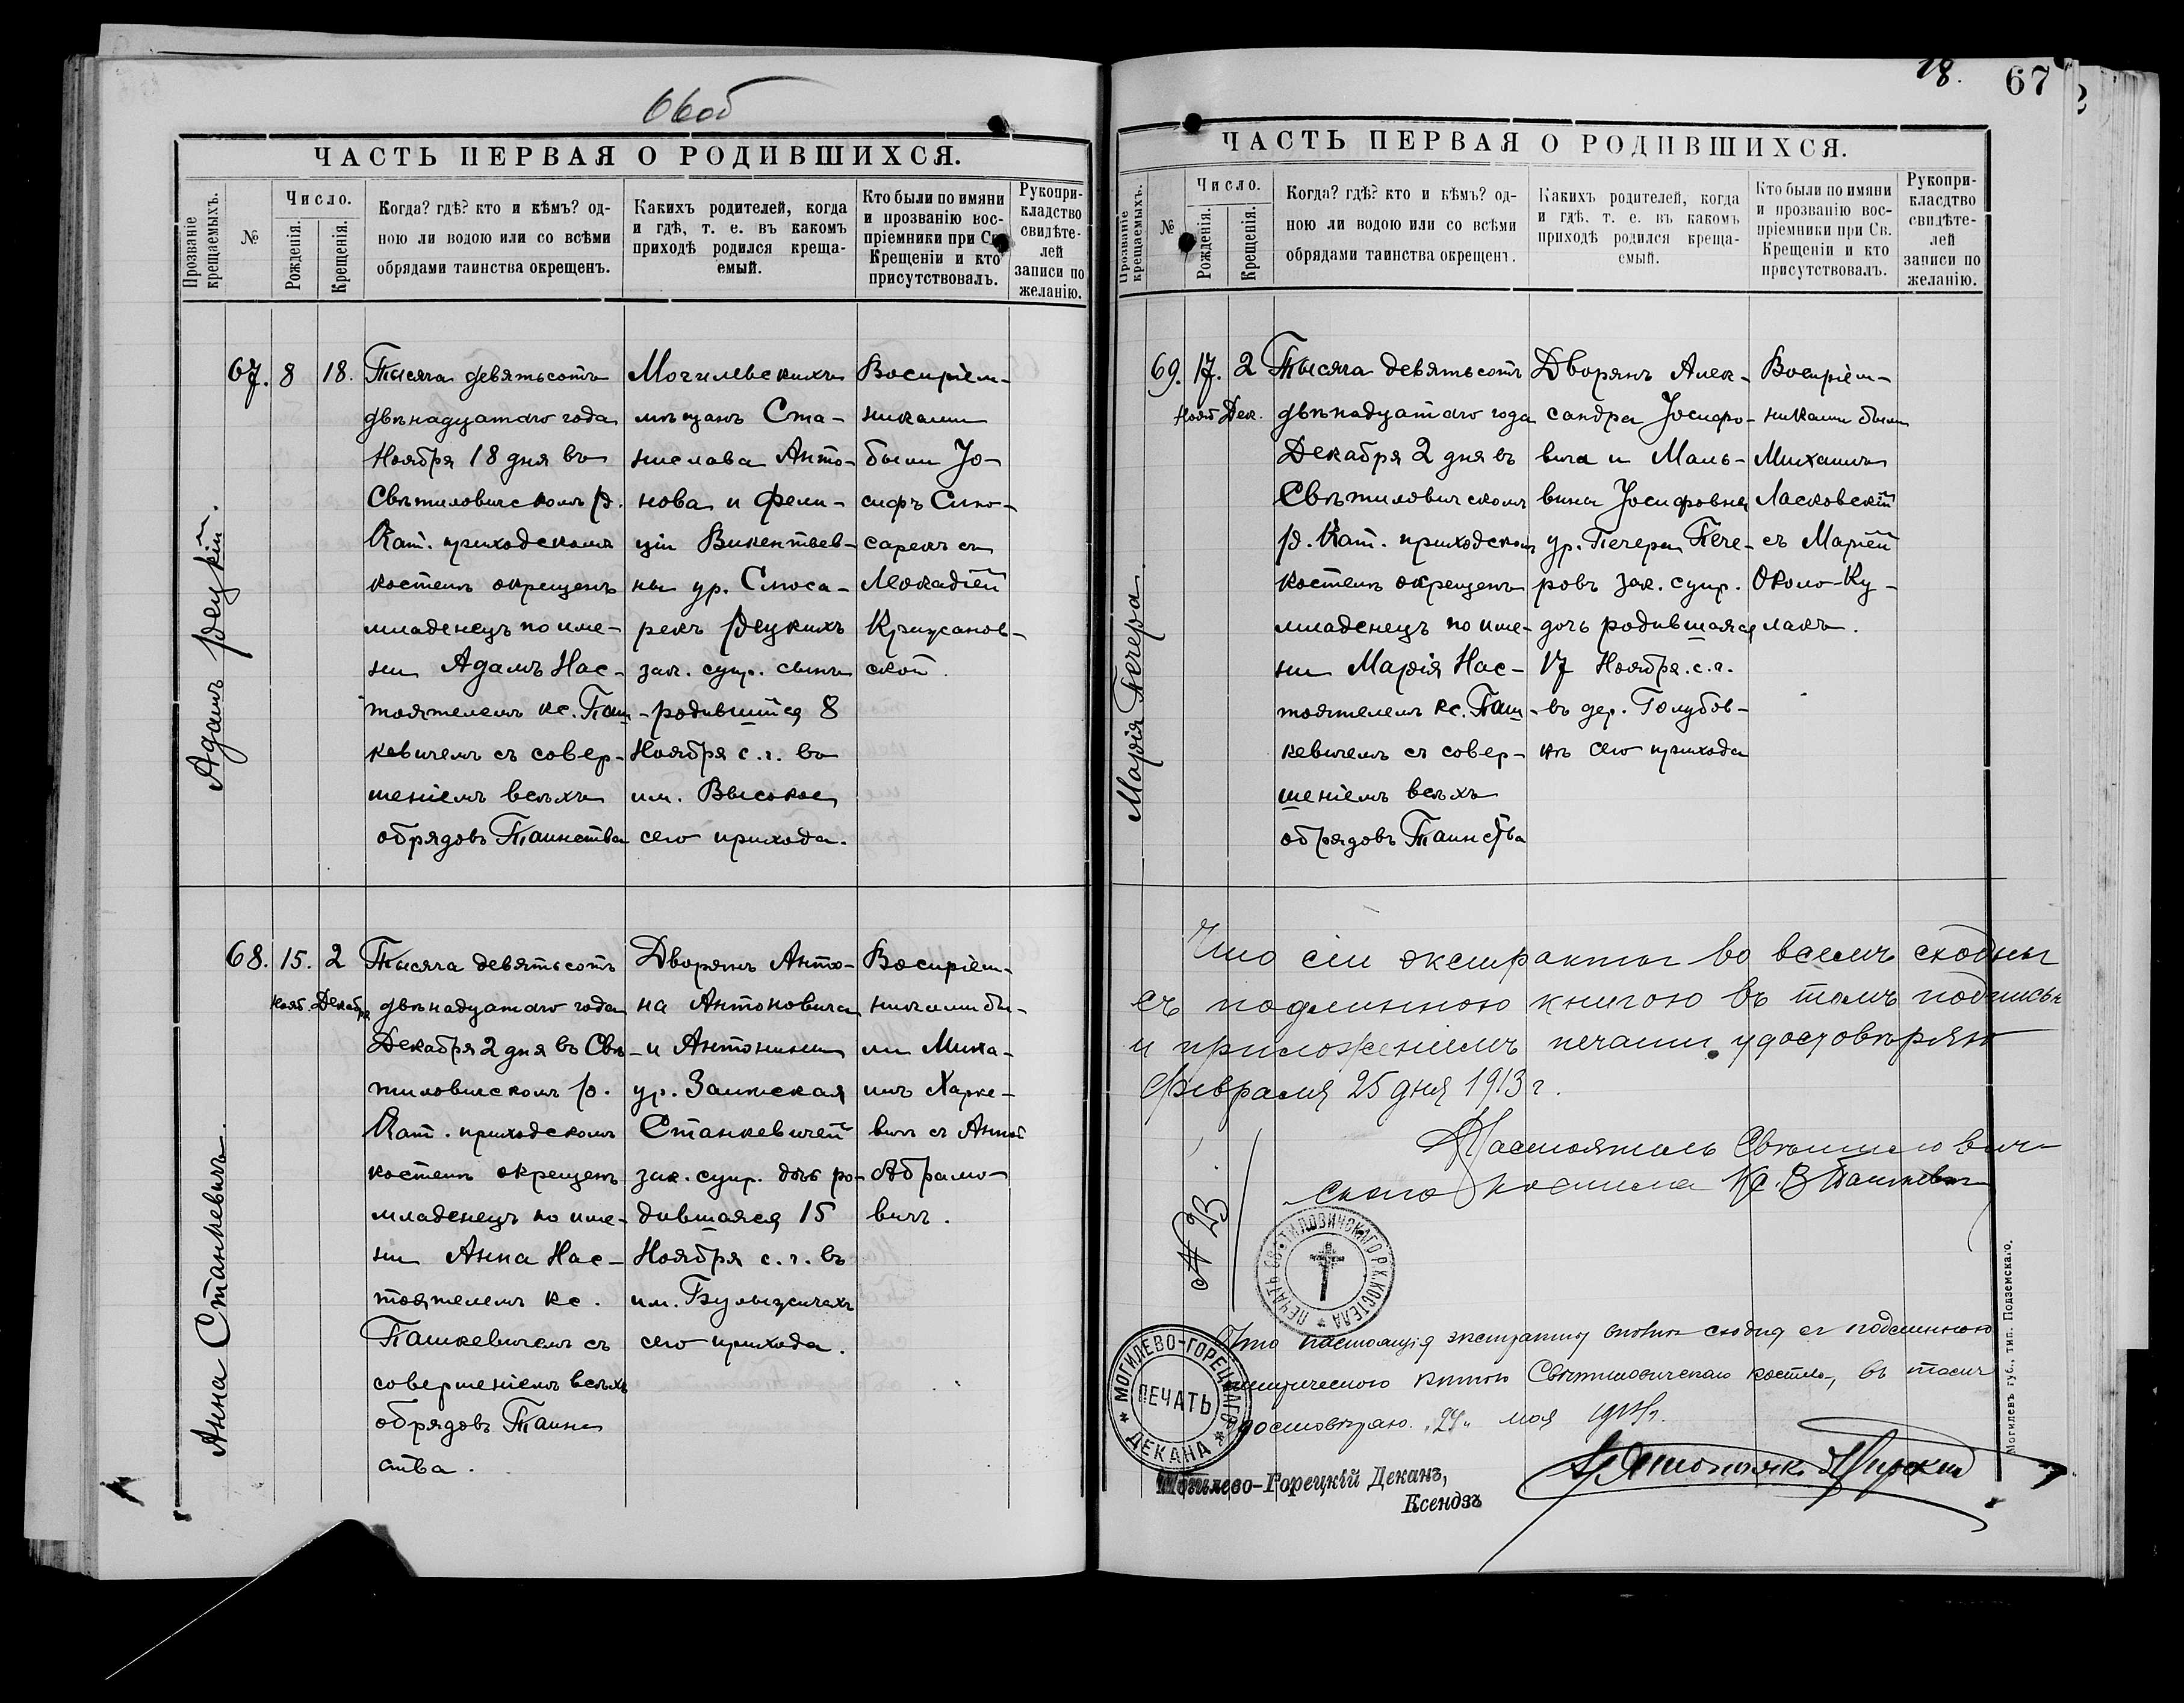 66об
ЧАСТЬ ПЕРВАЯ О РОДИВШИХСЯ.
Прозваніе крещаемыхъ.
№
Число.
Рожденія.
Крещенія.
Когда? гдѣ? кто и кѣмъ? од-
ною ли водою или со всѣми
обрядами таинства окрещенъ.
Какихъ родителей, когда
и гдѣ, т. е. въ какомъ
приходѣ родился креща-
емый.
Кто были по имяни
и прозванію вос-
пріемники при Св.
Крещеніи и кто
присутствовалъ.
Рукопри-
кладство
свидѣте-
лей
записи по
желанію.
Адамъ Рецкій.
67.
8
18.
Тысяча девятьсотъ
двѣнадцатаго года
Ноября 18 дня въ
Свѣтиловичскомъ р.
Кат. приходскомъ
костелѣ окрещенъ
младенецъ по име-
ни Адамъ Нас-
тоятелемъ кс. Паш-
кевичемъ съ совер-
шеніемъ всѣхъ
обрядовъ Таинства
Могилевскихъ
мѣщанъ Ста-
нислава Анто-
нова и Фели-
ціи Викентьев-
ны ур. Слюса-
рекъ Рецкихъ
зак. супр. сынъ
родившійся 8
Ноября с. г. въ
им. Высокое
сего прихода.
Воспріем-
никами
были Іо-
сифъ Слю-
сарекъ съ
Леокадіей
Крижанов-
ской.
Анна Станкевичъ.
68.
15.
2
Нояб.
Декабр
Тысяча девятьсотъ
двѣнадцатаго года
Декабря 2 дня въ Свѣ-
тиловичскомъ р.
Кат. приходскомъ
костелѣ окрещенъ
младенецъ по име-
ни Анна Нас-
тоятелемъ кс.
Пашкевичемъ съ
совершеніемъ всѣхъ
обрядовъ Таин
ства.
Дворянъ Анто-
на Антоновича
и Антонины
ур.
Станкевичей
зак. супр. дочь ро-
дившаяся 15
Ноября с. г. въ
им.
сего прихода.
Воспріем-
никами бы-
ли Миха-
илъ Харке-
вичъ съ Анной
Абрамо-
вичъ.
18.
67
ЧАСТЬ ПЕРВАЯ О РОДИВШИХСЯ.
Прозваніе крещаемыхъ.
№
Число.
Рожденія.
Крещенія.
Когда? гдѣ? кто и кѣмъ? од-
ною ли водою или со всѣми
обрядами таинства окрещенъ.
Какихъ родителей, когда
и гдѣ, т. е. въ какомъ
приходѣ родился креща-
емый.
Кто были по имяни
и прозванію вос-
пріемники при Св.
Крещеніи и кто
присутствовалъ.
Рукопри-
касдтво
свидѣте-
лей
записи по
желанію.
Марія Печера.
69.
17.
2
Нояб
Дек.
Тысяча девятьсотъ
двѣнадцатаго года
Декабря 2 дня въ
Свѣтиловичскомъ
р. Кат. приходскомъ
костелѣ окрещенъ
младенецъ по име-
ни Марія Нас-
тоятелемъ кс. Паш-
кевичемъ съ совер-
шеніемъ всѣхъ
обрядовъ Таинства
Дворянъ Алек-
сандра Іосифо-
вича и Маль-
вины Іосифовны
ур. Печера Пече-
ровъ зак. супр.
дочь родившаяся
17 Ноября. с. г.
въ дер. Голубов-
кѣ сего прихода
Воспріем-
никами были
Михаилъ
Ласковскій
съ Маріей
Около-Ку-
лакъ.
Что сіи экстракты во всемъ сходны
съ подлинною книгою въ томъ подписью
и приложеніемъ печати удостовѣряю
Февраля 25 дня 1913 г.
Настоятель Свѣтилович-
скаго костела Кс. В Пашкевич
№ 23
ПЕЧАТЬ СВѢТИЛОВИЧСКАГО Р. К. КОСТЕЛА
Что настоящія экстракты вполнѣ сходны съ подлинною
метрическою книгою Свѣтиловичскаго костела, въ томъ
удостовѣряю.
МОГИЛЕВО-ГОРЕЦКАГО
ПЕЧАТЬ
ДЕКАНА
Могилево-Горецкій Деканъ,
Ксендзъ
Могилевъ губ., тип. Подземскаго.